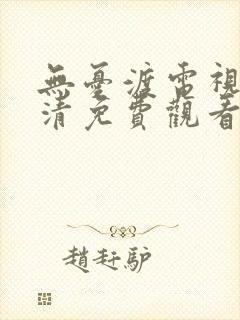 無憂渡電視
清免費觀看
趙赶驴